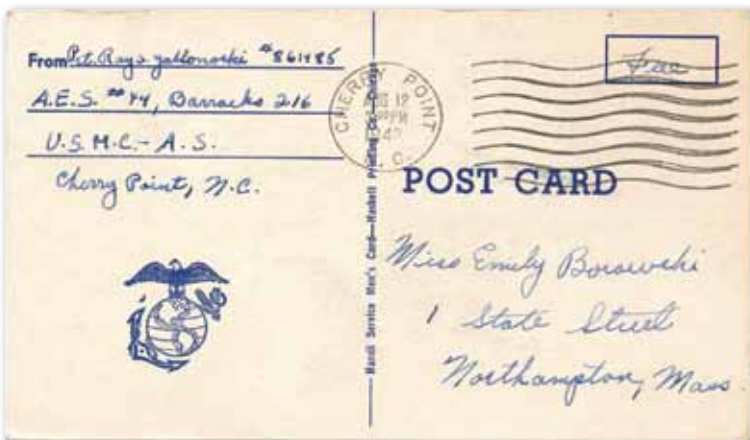 From Pvt. Ray J. Yablonoski #861485
A.E.S. #44, Barracks 216
U.S.M.C. - A.S.
Cherry Point, N.C.
Mandi Service Men's Card—Haskell Printing Co.—Chicago
CHERRY POINT
AUG 12
PM
N. C.
Free
POST CARD
Miss Emily Borowski
1 State Street
Northampton, Mass.